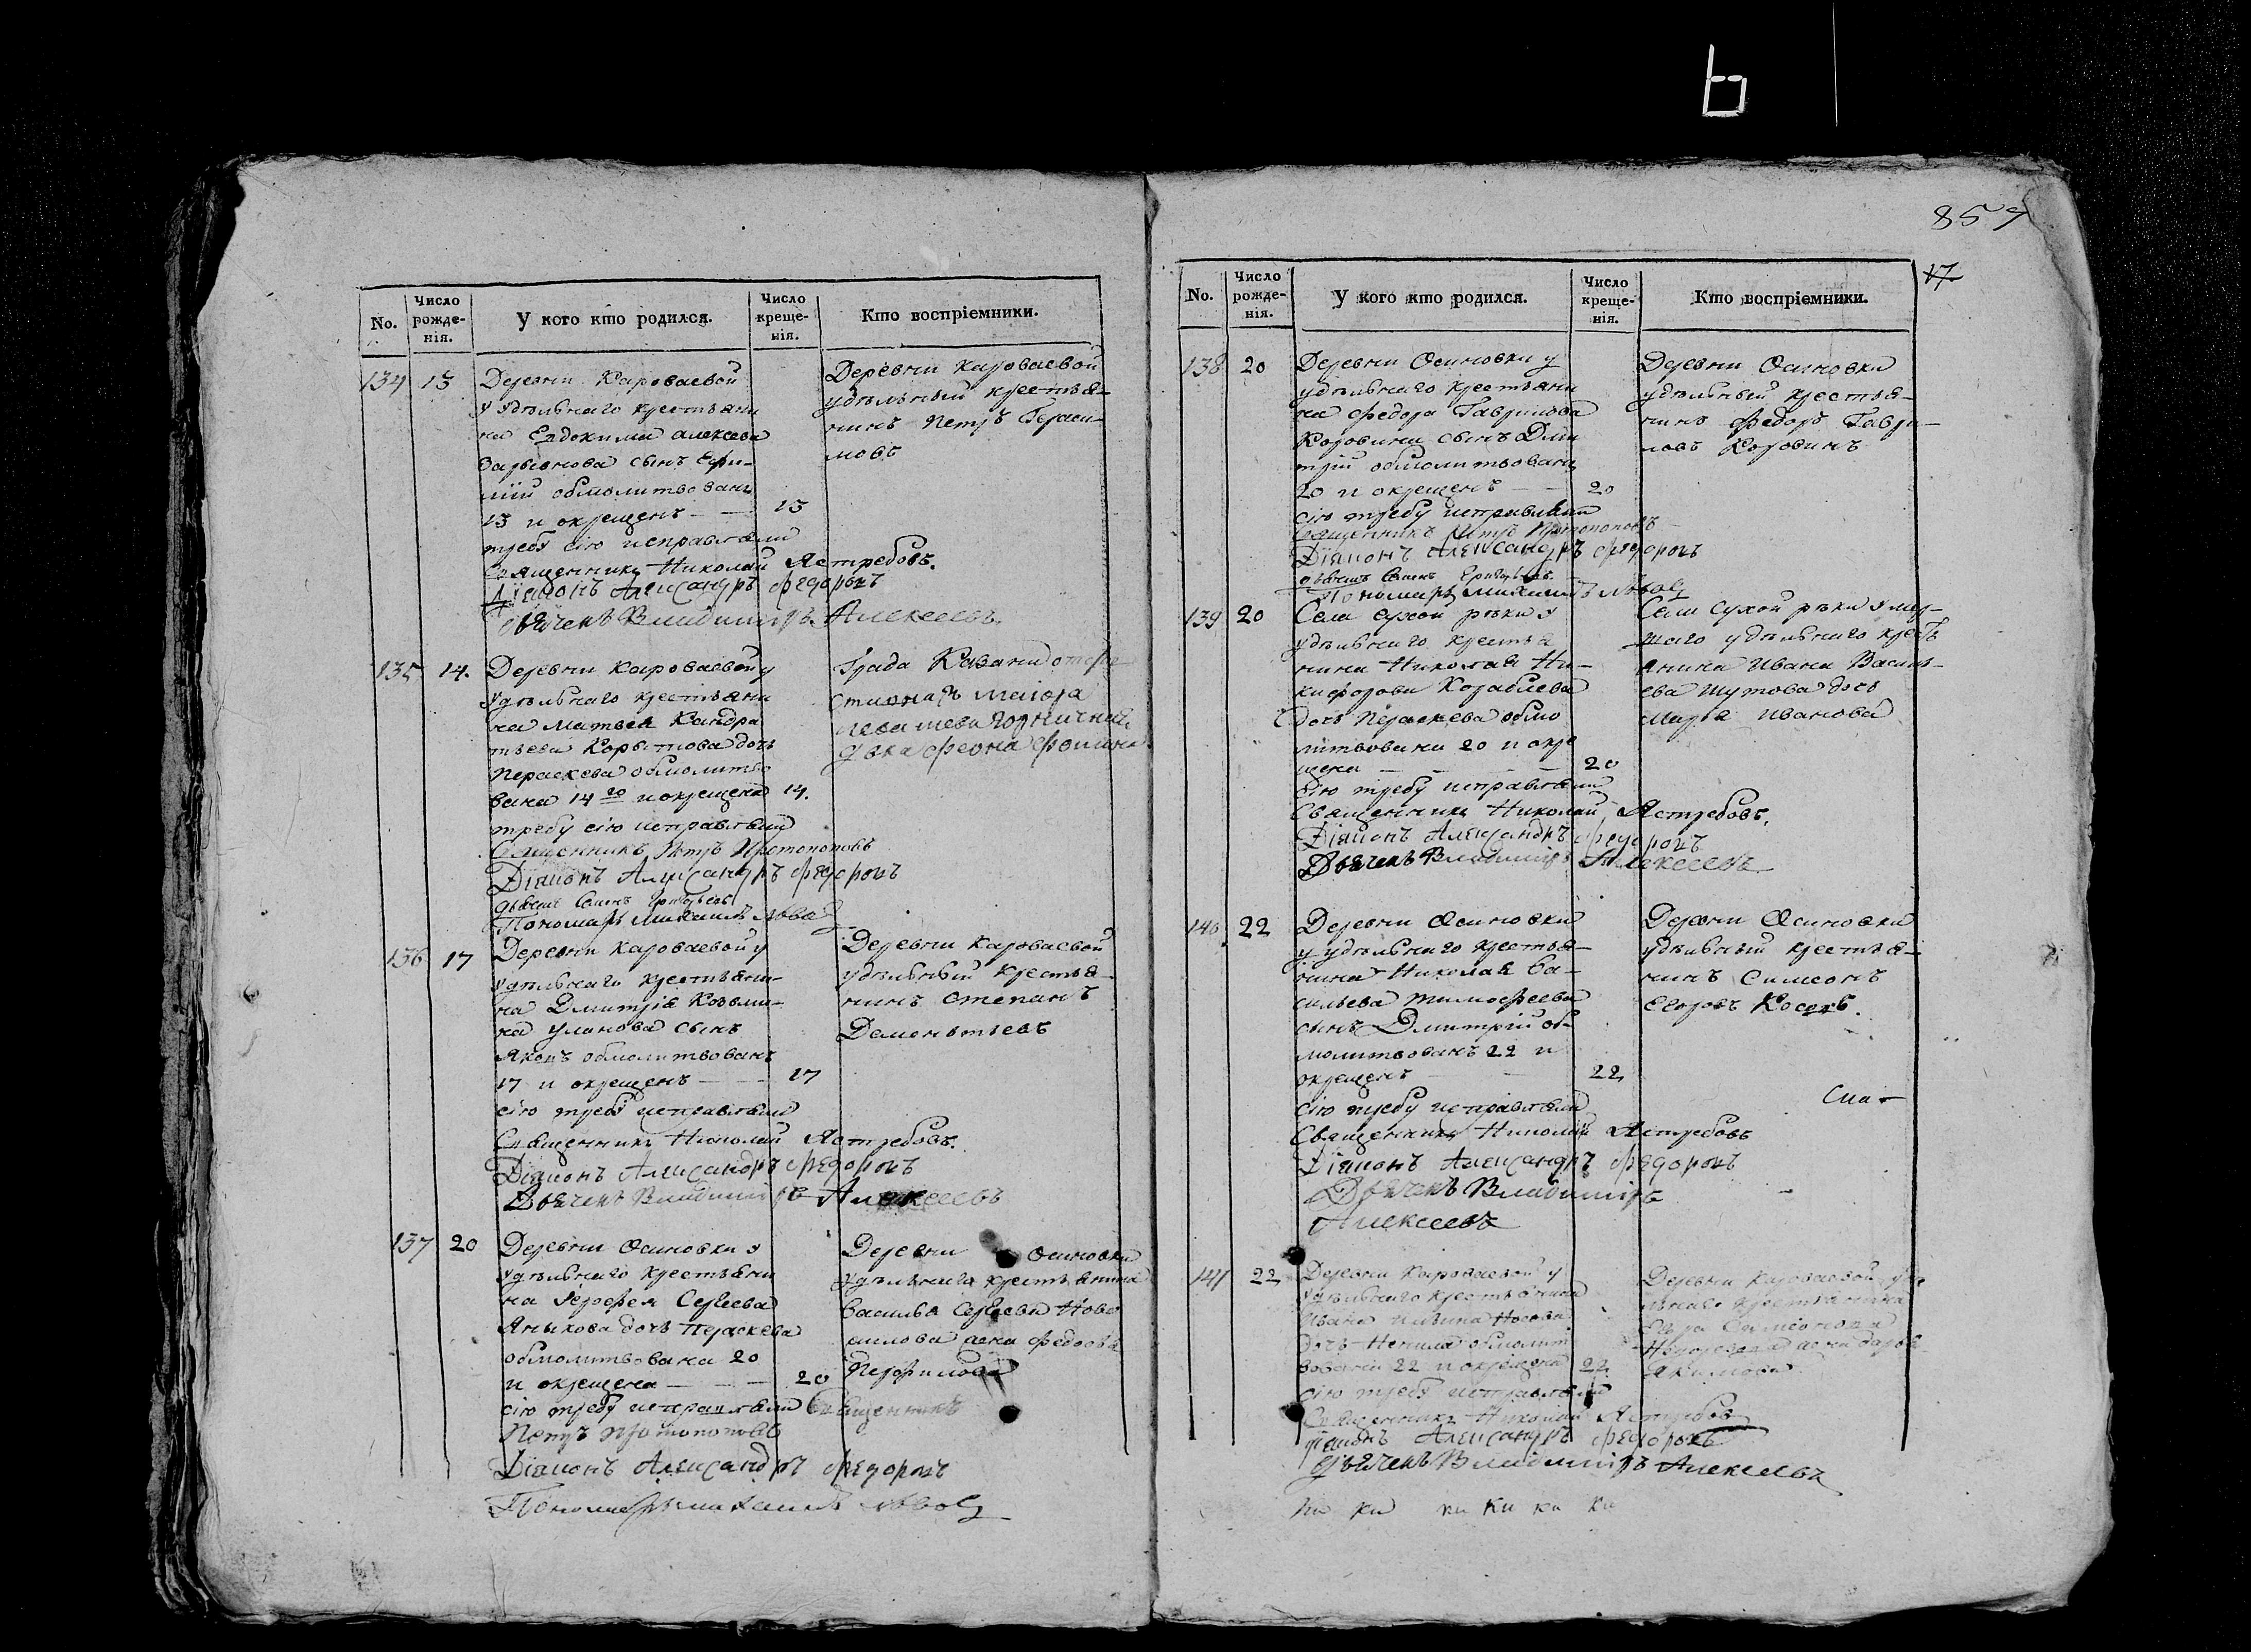 857
17
No.
Число рожде-нія.
У кого кто родился.
Число креще-нія.
Кто воспріемники.
134 13 Деревни Кароваевой
у удѣльнаго крестьяни
на Евдокима Алексева
сынъ Ефи-
мій обмолитвованъ
13 и окрещенъ — 13
требу сію исправляли
Священникъ Николай Ястребовъ.
Діаконъ Александръ Федоровъ
Дьячекъ Владимиръ Алексеевъ
Деревни Кароваевой
удѣльный крестья-
нинъ Петръ Гераси-
мовъ
135 14. Деревни Кароваевой у
удѣльнаго крестьяни
на Матвея Кандра
тьева Корытова дочь
Пераскева обмолитво
вана 14го и окрещена 14.
требу сію исправляли
Священникъ Петръ Протопоповъ
Діаконъ Александръ Федоровъ
дьячекъ Семенъ
Пономарь Михаилъ Львовъ
Града Казани
маіора
горничная
дѣвка
136 17 Деревни Кароваевой у
удѣльнаго крестьяни-
на Дмитрія Козьми-
на Уланова сынъ
Яковъ обмолитвованъ
17 и окрещенъ — 17
сію требу исправляли
Священникъ Николай Ястребовъ.
Діаконъ Александръ Федоровъ
Дьячекъ Владимиръ Алексеевъ
Деревни Кароваевой
удѣльный крестья-
нинъ Степанъ
Дементьевъ
137 20 Деревни Осиновки у
удѣльнаго крестьяни
на Ферофея Сергеева
Яныкова дочь Пераскева
обмолитвована 20
и окрещена — 20
сію требу исправляли Священникъ
Петръ Протопоповъ
Діаконъ Александръ Федоровъ
Пономарь Михаилъ Львовъ
Деревни Осиновки
удѣльнаго крестьянина
Василья Сергеева Ново
силова жена Федосья
No.
Число рожде-нія.
У кого кто родился.
Число креще-нія.
Кто воспріемники.
138 20 Деревни Осиновки у
удѣльнаго крестьяни
на Федора Гаврилова
Коровина сынъ Дми
трій обмолитвованъ
20 и окрещенъ — 20
сію требу исправляли
Священникъ Петръ Протопоповъ
Діаконъ Александръ Федоровъ
дьячекъ Семенъ
Пономарь Михаилъ Львовъ
Деревни Осиновки
удѣльный крестья-
нинъ Федоръ Гаври-
ловъ Коровинъ
139 20 Села Сухой рѣки у
удѣльнаго крестья
нина Николая Ни-
кифорова Кораблева
дочь Пераскева обмо
литвована 20 и окре
щена — 20
сію требу исправляли
Священникъ Николай Ястребовъ.
Діаконъ Александръ Федоровъ
Дьячекъ Владимиръ Алексеевъ
Села Сухой рѣки умер-
шаго удѣльнаго кресть
янина Ивана Василь-
ева Шутова дочь
Марья Иванова
140 22 Деревни Осиновки
у удѣльнаго крестья-
нина Николая Ва-
сильева Тимофеева
сынъ Дмитрій об-
молитвованъ 22 и
окрещенъ 22
сію требу исправляли
Священникъ Николай Ястребовъ
Діаконъ Александръ Федоровъ
Дьячекъ Владимиръ
Алексеевъ
Деревни Осиновки
удѣльный крестья-
нинъ Симеонъ
Егоровъ Косовъ.
141 22 Деревни Кароваевой у
удѣльнаго крестьянина
Ивана
дочь Ненила обмолит
вована 22 и окрещена 22
сію требу исправляли
Священникъ Николай Ястребовъ
Діаконъ Александръ Федоровъ
Дьячекъ Владимиръ Алексеевъ
Деревни Кароваевой удѣ-
льнаго крестьянина
жена Дарья
Якимова
ки ки ки ки ки